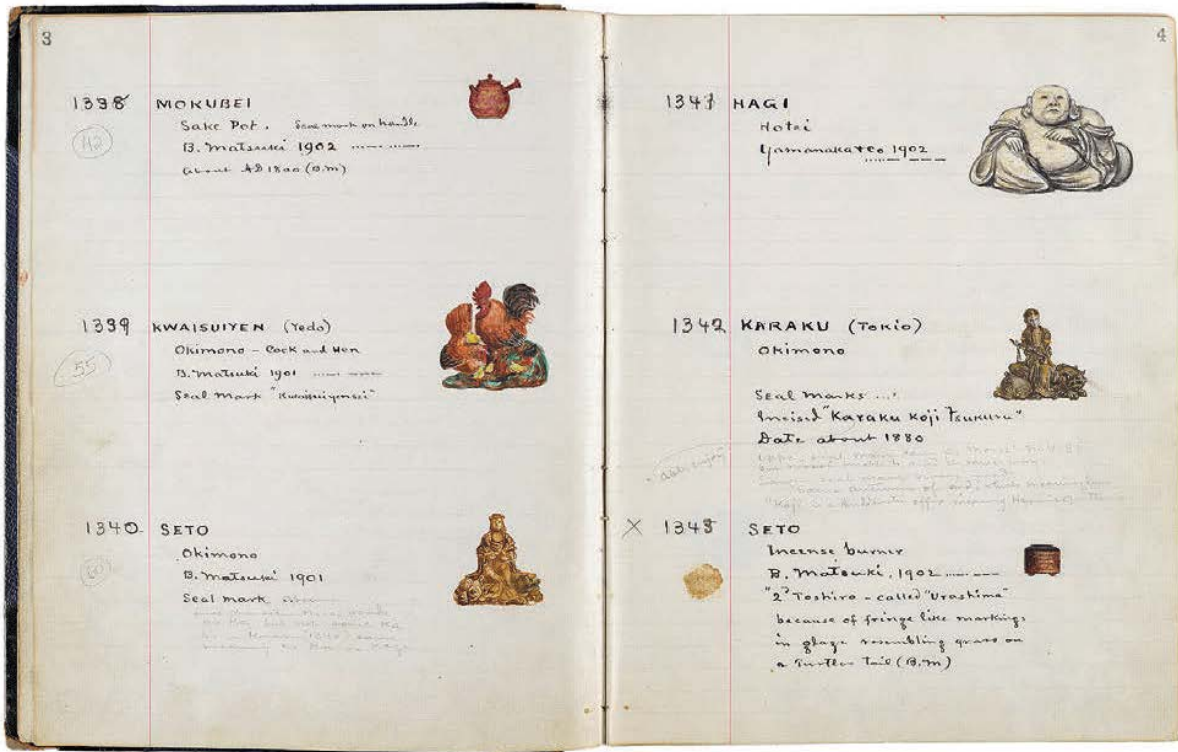 3
1338 MOKUBEI
112
Sake Pot. Seal mark on handle
B. Matsuki 1902 ........ ........
about AD 1800 (B.M)
1339 KWAISUIYEN (Yedo)
55
Okimono - Cock and Hen
B. Matsuki 1901 ........ ........
Seal Mark "Kwaisuiyensei"
1340 SETO
60
Okimono
B. Matsuki 1901
Seal mark
4
1341 HAGI
Hotei
Yamanaka & Co 1902
1342 KARAKU (Tokio)
Okimono
Seal Marks ...
Incised "Karaku Koji Tsukuru"
Date about 1880
X 1343 SETO
Incense burner
B. Matsuki, 1902 ..... ---
"2" Toshiro - called "Urashima"
because of fringe like markings
in glaze resembling grass on
a Turtles Tail (B.M)